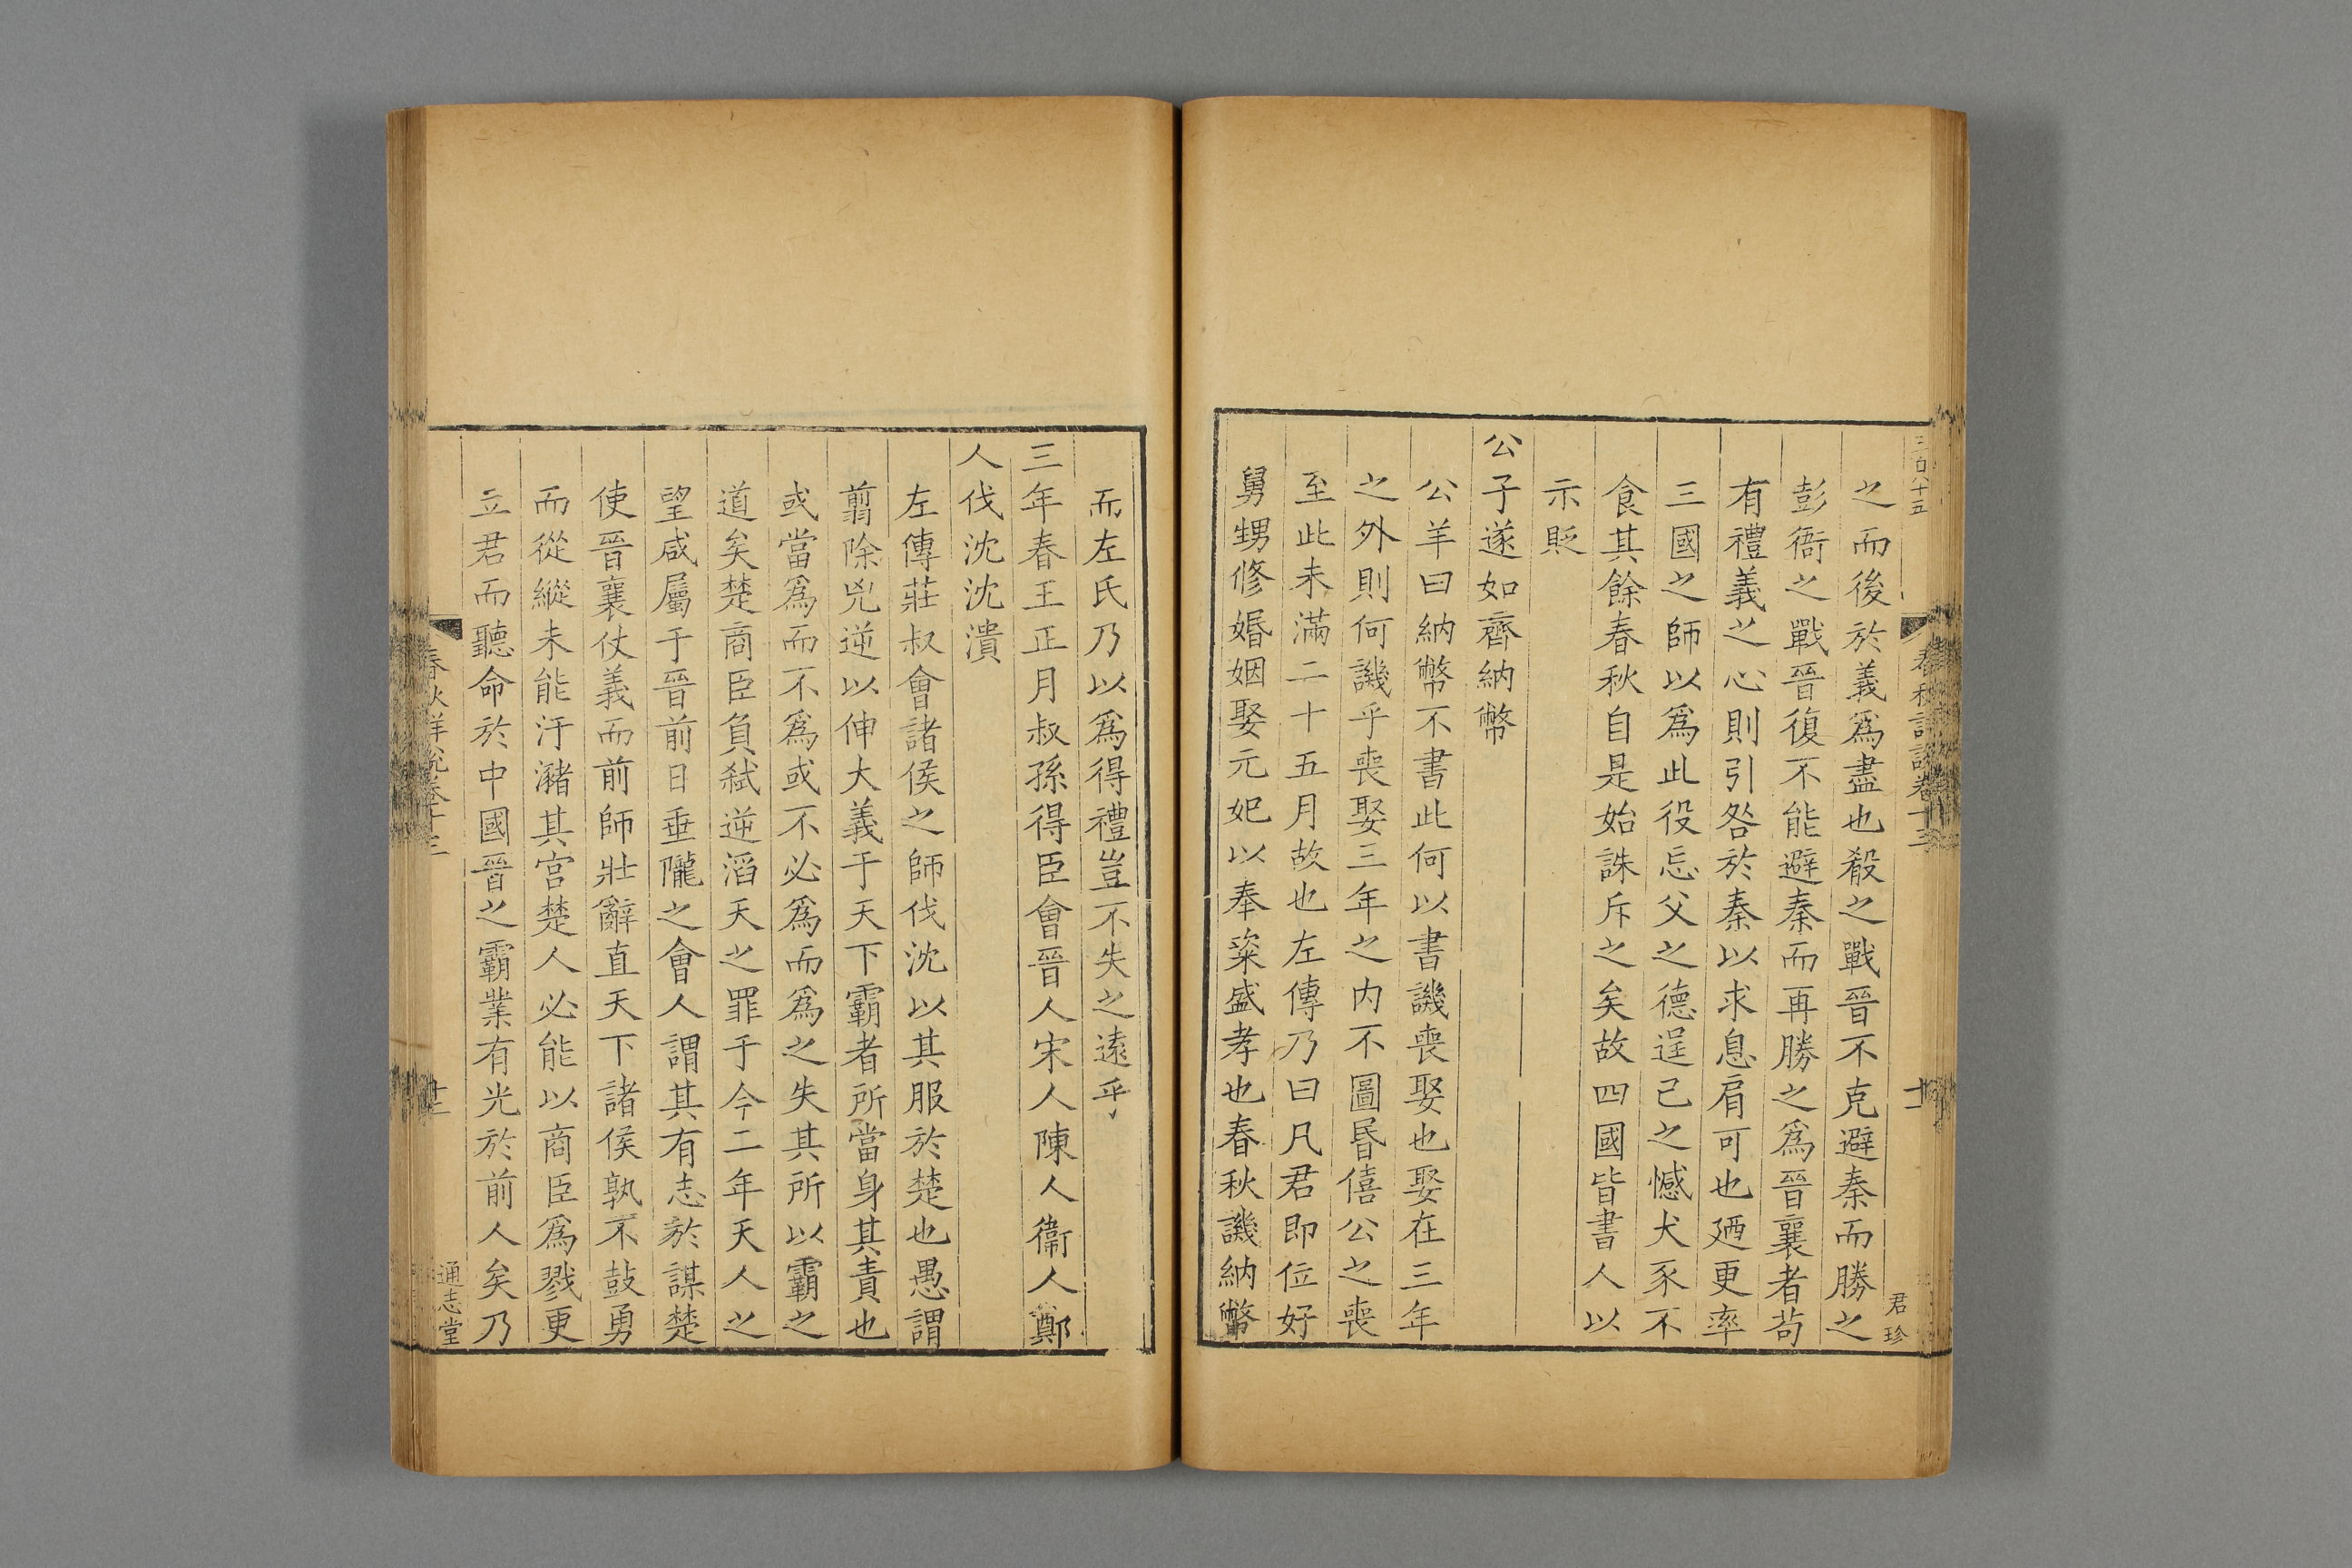 三百八十五
春秋詳說卷十三
十二
君珍
之而後於義爲盡也殽之戰晉不克避秦而勝之
彭衙之戰晉復不能避秦而再勝之爲晉襄者茍
有禮義之心則引咎於秦以求息肩可也廼更率
三國之師以爲此役忘父之德逞己之憾犬豕不
食其餘春秋自是始誅斥之矣故四國皆書人以
示貶
公子遂如齊納幣
公羊曰納幣不書此何以書譏喪娶也娶在三年
之外則何譏乎喪娶三年之内不圖昬僖公之喪
至此未滿二十五月故也左傳乃曰凡君即位好
舅甥修婚姻娶元妃以奉粢盛孝也春秋譏納幣
而左氏乃以爲得禮豈不失之遠乎
三年春王正月叔孫得臣會晉人宋人陳人衞人鄭
人伐沈沈潰
左傳莊叔會諸侯之師伐沈以其服於楚也愚謂
翦除兇逆以伸大義于天下霸者所當身其責也
或當爲而不爲或不必爲而爲之失其所以霸之
道矣楚商臣負弑逆滔天之罪于今二年天人之
望咸屬于晉前日垂隴之會人謂其有志於謀楚
使晉襄仗義而前師壯辭直天下諸侯孰不鼓勇
而從縱未能汙瀦其宮楚人必能以商臣爲戮更
立君而聽命於中國晉之霸業有光於前人矣乃
春秋詳說卷十三
十三
通志堂